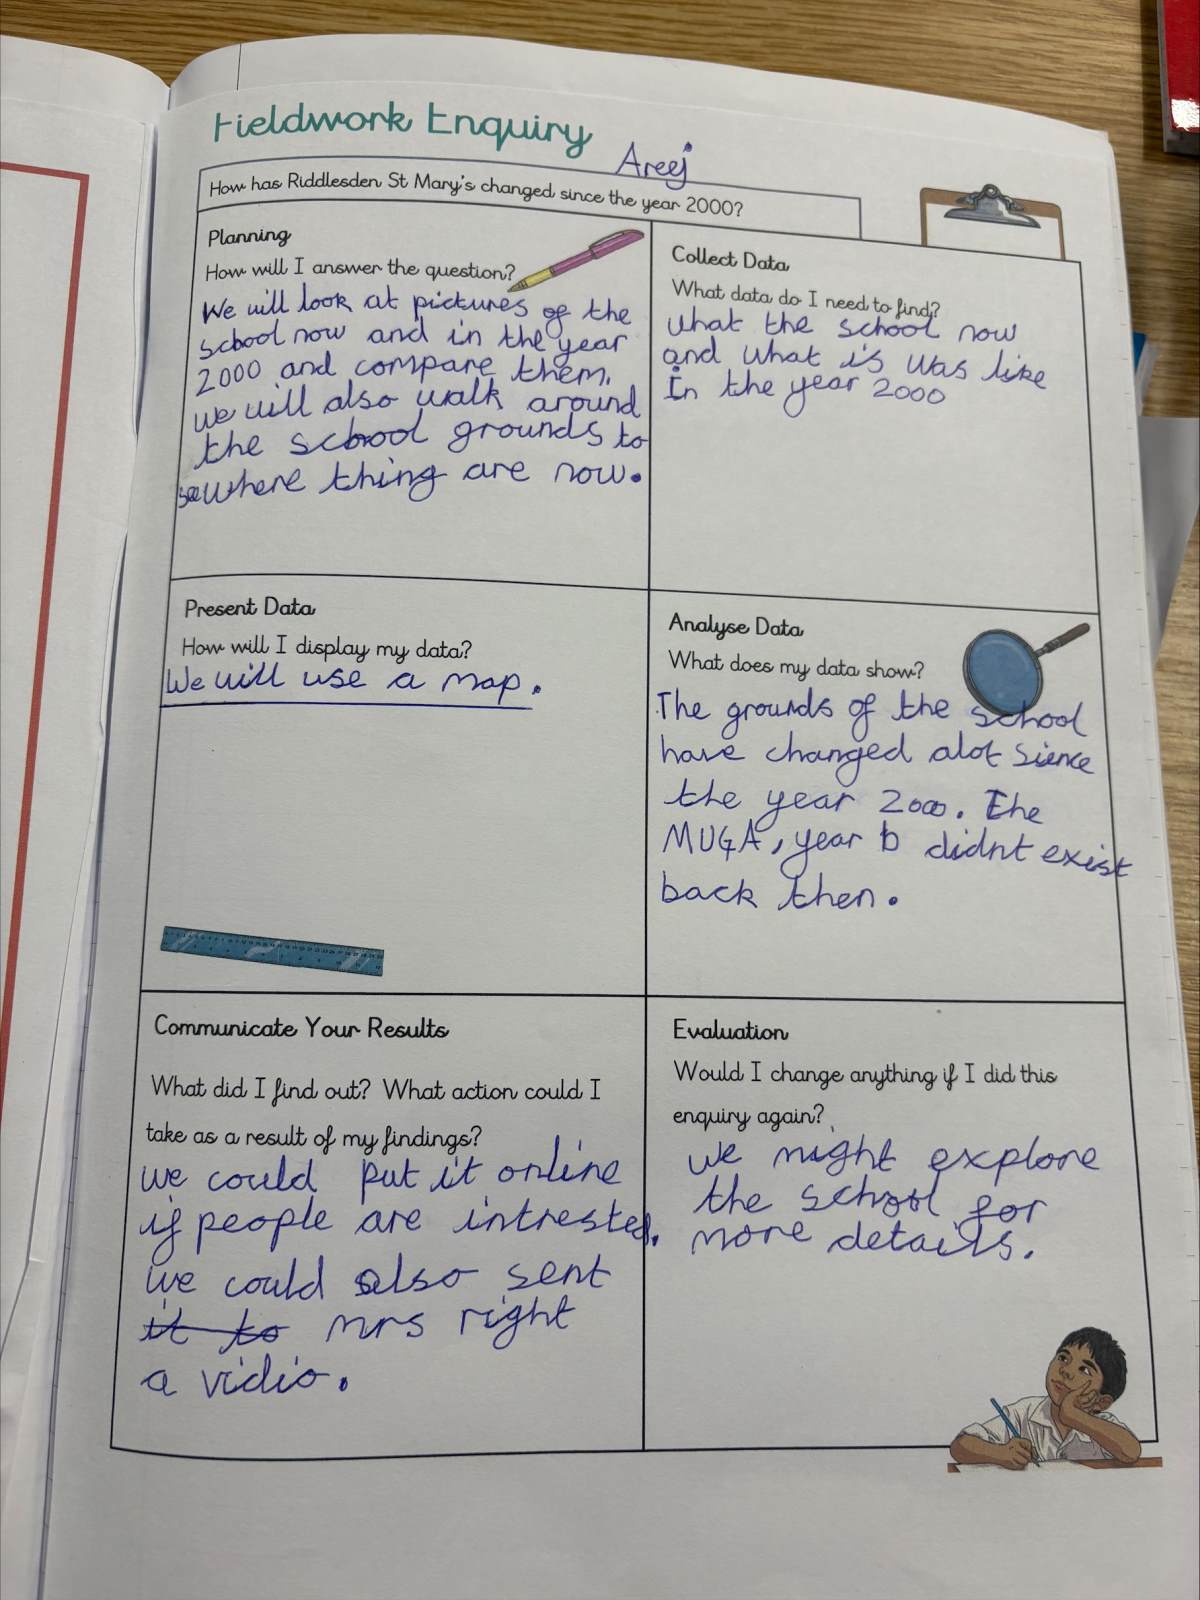 Fieldwork Enquiry
Areej
How has Riddlesden St Mary's changed since the year 2000?
Planning
How will I answer the question?
We will look at pictures of the
school now and in the year
2000 and compare them.
we will also walk around
the school grounds to
see where thing are now.
Collect Data
What data do I need to find?
what the school now
and what is was like
In the year 2000
Present Data
How will I display my data?
We will use a map.
Analyse Data
What does my data show?
The grounds of the school
have changed alot sience
the year 2000. The
MUGA, year 6 didnt exist
back then.
Communicate Your Results
What did I find out? What action could I
take as a result of my findings?
we could put it online
if people are intrested.
we could also sent
it to mrs right
a vidio.
Evaluation
Would I change anything if I did this
enquiry again?
we might explore
the school for
more details.